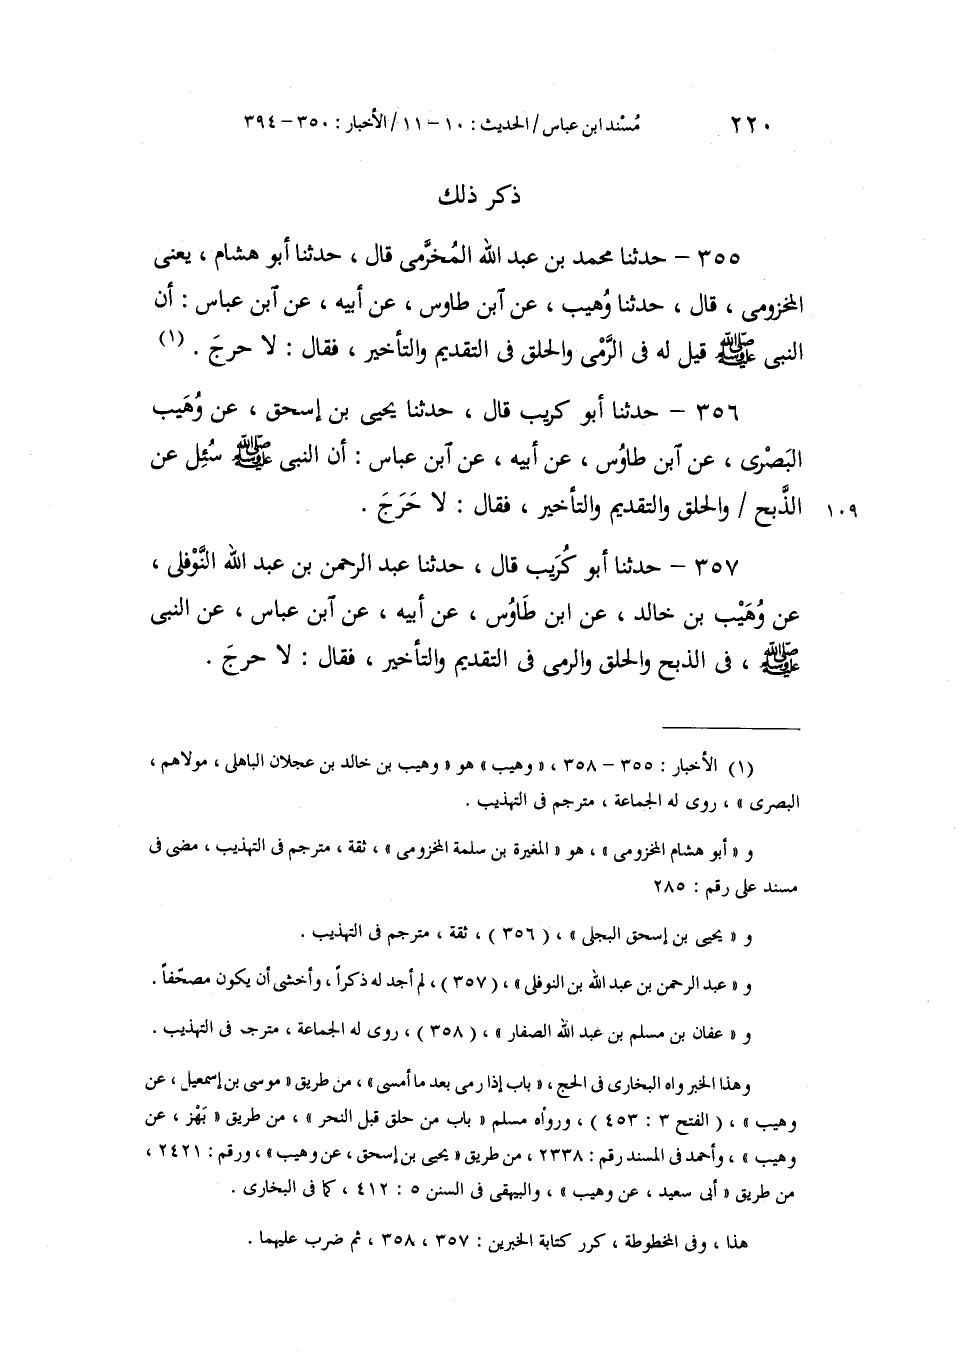 ٢٢٠ مُسْند ابن عباس / الحديث : ١٠ – ١١ / الأخبار : ٣٥٠ – ٣٩٤
ذكر ذلك
٣٥٥ – حدثنا محمد بن عبد الله المُخرَّمى قال ، حدثنا أبو هشام ، يعنى
المخزومى ، قال ، حدثنا وُهيب ، عن آبن طاوس ، عن أبيه ، عن آبن عباس : أن
النبى ﷺ قيل له فى الرَّمْى والحلق فى التقديم والتأخير ، فقال : لا حرجَ . (١)
٣٥٦ – حدثنا أبو كريب قال ، حدثنا يحيى بن إسحق ، عن وُهَيب
البَصْرى ، عن آبن طاوُس ، عن أبيه ، عن آبن عباس : أن النبى ﷺ سُئِل عن
١٠٩ الذَّبح / والحلق والتقديم والتأخير ، فقال : لا حَرَجَ .
٣٥٧ – حدثنا أبو كُرَيب قال ، حدثنا عبد الرحمن بن عبد الله النَّوْفلى ،
عن وُهَيْب بن خالد ، عن ابن طَاوُس ، عن أبيه ، عن آبن عباس ، عن النبى
ﷺ ، فى الذبح والحلق والرمى فى التقديم والتأخير ، فقال : لا حرجَ .
(١) الأخبار : ٣٥٥ – ٣٥٨ ، « وهيب » هو « وهيب بن خالد بن عجلان الباهلى ، مولاهم ،
البصرى » ، روى له الجماعة ، مترجم فى التهذيب .
و « أبو هشام المخزومى » ، هو « المغيرة بن سلمة المخزومى » ، ثقة ، مترجم فى التهذيب ، مضى فى
مسند على رقم : ٢٨٥
و « يحيى بن إسحق البجلى » ، ( ٣٥٦ ) ، ثقة ، مترجم فى التهذيب .
و « عبد الرحمن بن عبد الله بن النوفلى » ، ( ٣٥٧ ) ، لم أجد له ذكراً ، وأخشى أن يكون مصحّفاً .
و « عفان بن مسلم بن عبد الله الصفار » ، ( ٣٥٨ ) ، روى له الجماعة ، مترجم فى التهذيب .
وهذا الخبر رواه البخارى فى الحج ، « باب إذا رمى بعد ما أمسى » ، من طريق « موسى بن إسمعيل ، عن
وهيب » ، ( الفتح ٣ : ٤٥٣ ) ، ورواه مسلم « باب من حلق قبل النحر » ، من طريق « بَهْز ، عن
وهيب » ، وأحمد فى المسند رقم : ٢٣٣٨ ، من طريق « يحيى بن إسحق ، عن وهيب » ، ورقم : ٢٤٢١ ،
من طريق « أبى سعيد ، عن وهيب » ، والبيهقى فى السنن ٥ : ٤١٢ ، كما فى البخارى .
هذا ، وفى المخطوطة ، كرر كتابة الخبرين : ٣٥٧ ، ٣٥٨ ، ثم ضرب عليهما .